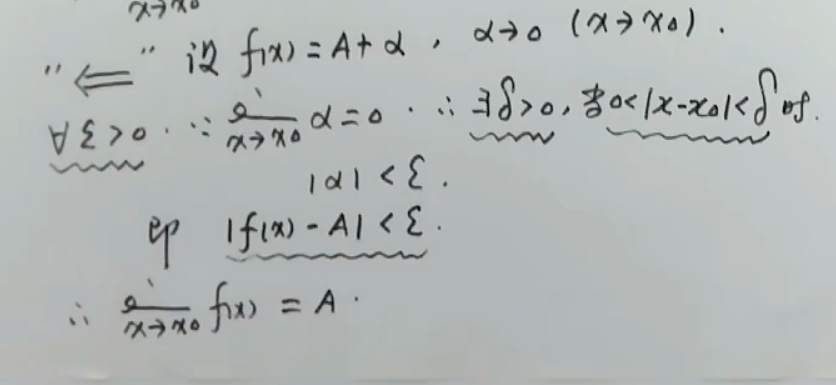 x→x₀
"⇐" 设 f(x) = A + α , α→0 (x→x₀).
∀ε>0. ∵ lim_{x→x₀} α = 0. ∴ ∃δ>0, 当0<|x-x₀|<δ时.
|α| < ε.
即 |f(x) - A| < ε.
∴ lim_{x→x₀} f(x) = A.